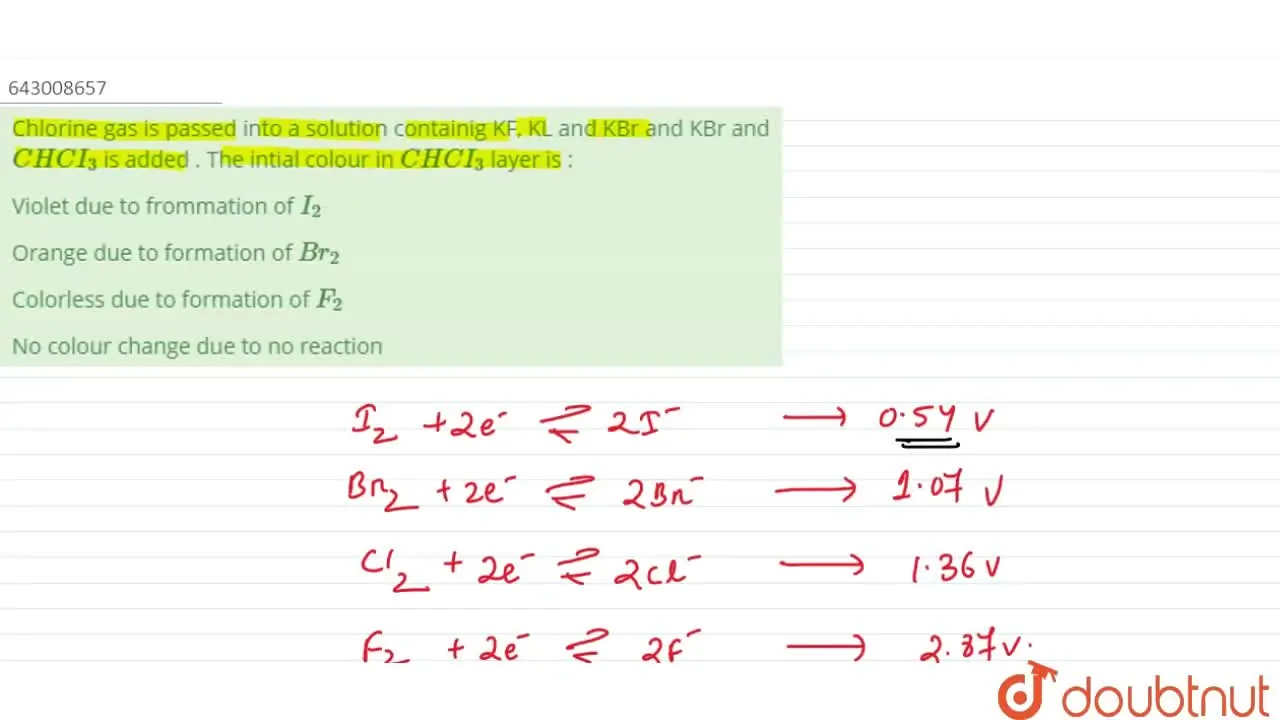 643008657
Chlorine gas is passed into a solution containig KF, KL and KBr and KBr and
CHCI₃ is added . The intial colour in CHCI₃ layer is :
Violet due to frommation of I₂
Orange due to formation of Br₂
Colorless due to formation of F₂
No colour change due to no reaction
I₂ + 2e⁻ ⇌ 2I⁻ → 0.54 V
Br₂ + 2e⁻ ⇌ 2Br⁻ → 1.07 V
Cl₂ + 2e⁻ ⇌ 2Cl⁻ → 1.36 V
F₂ + 2e⁻ ⇌ 2F⁻ → 2.87 V.
doubtnut